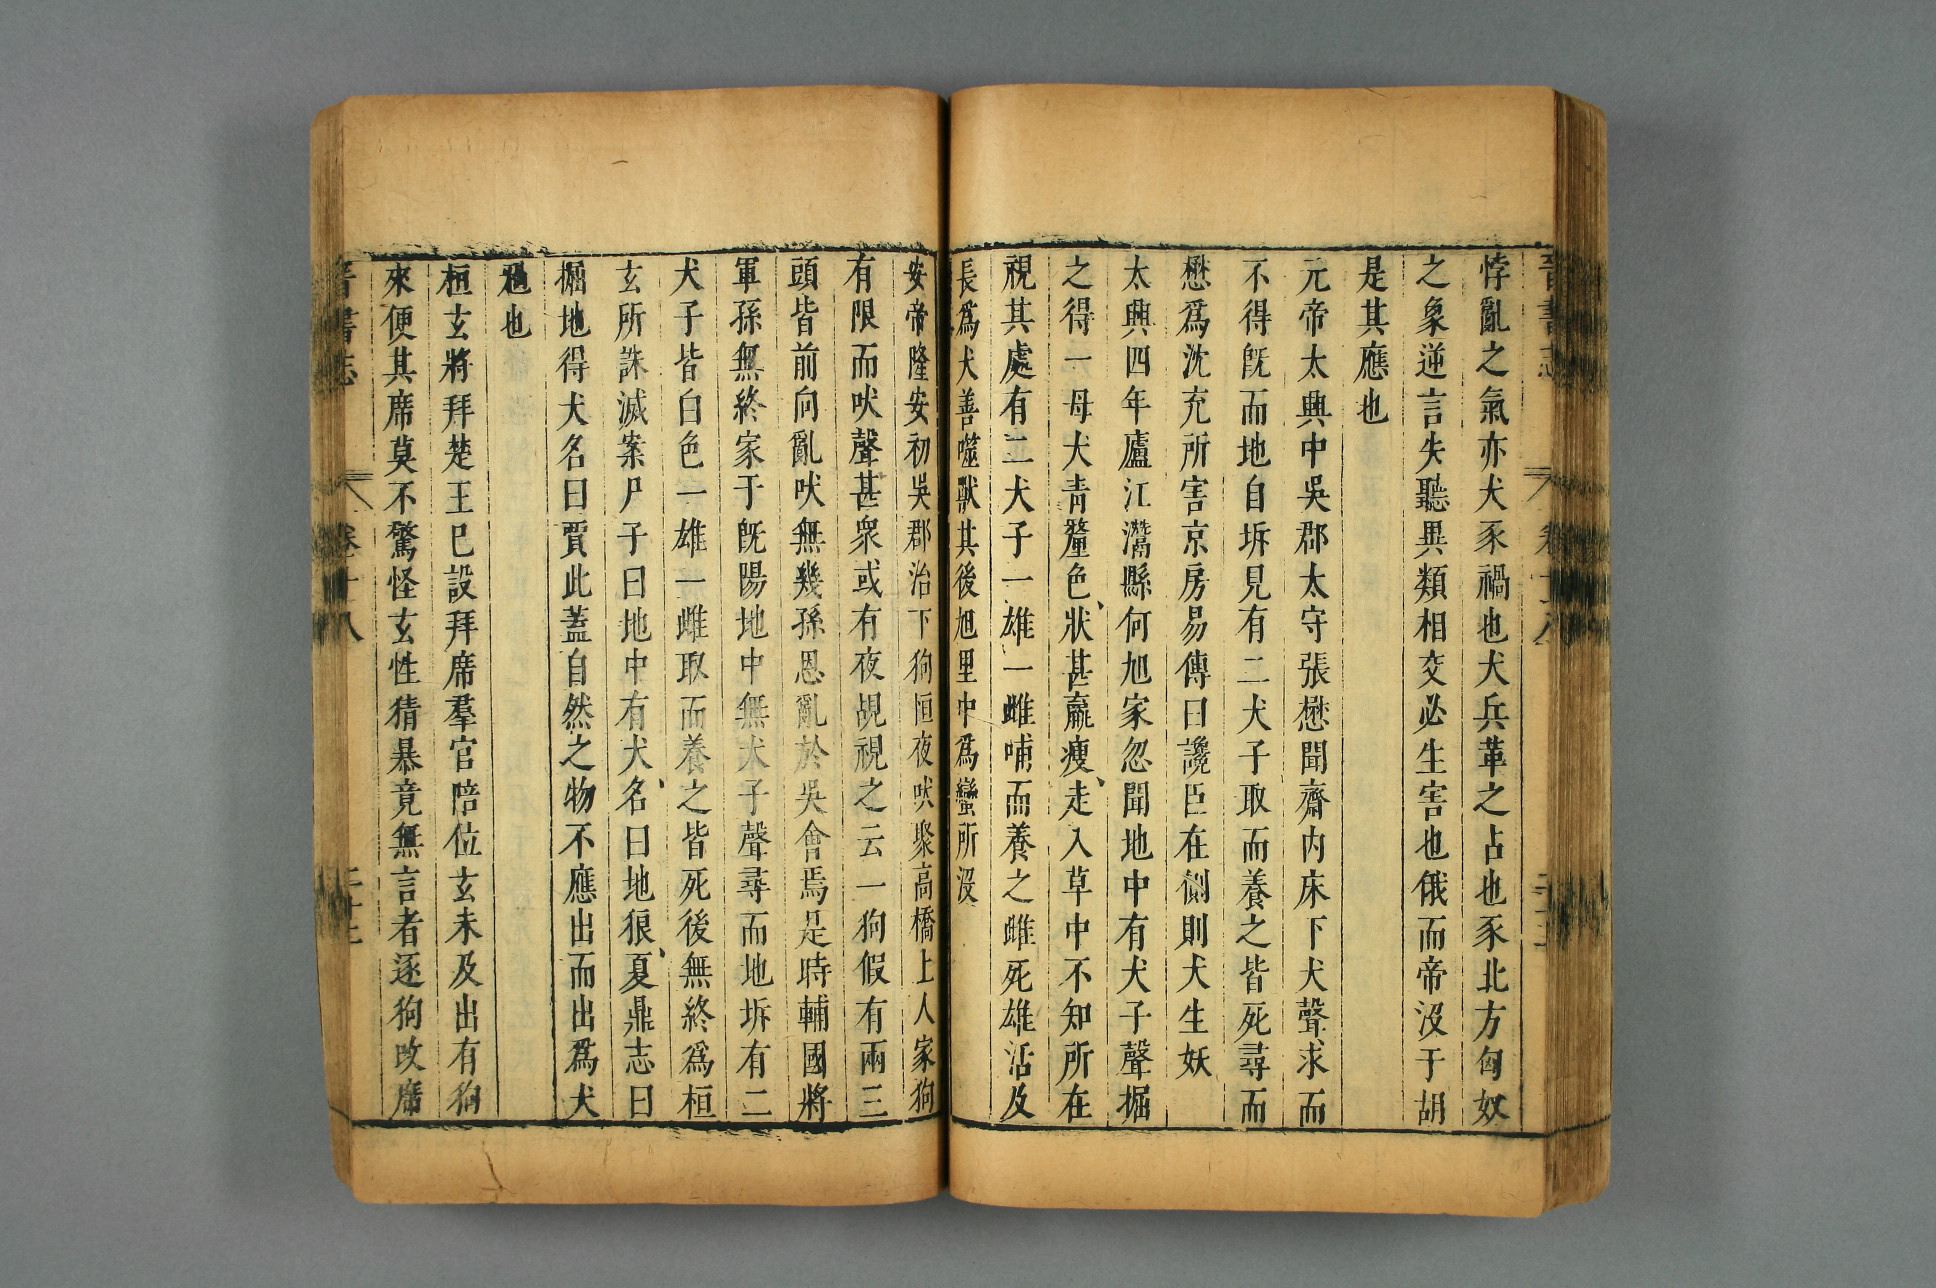 悖亂之氣亦犬豕禍也犬兵革之占也豕北方匈奴
之象逆言失聽異類相交必生害也俄而帝沒于胡
是其應也
元帝太興中吳郡太守張懋聞齋內床下犬聲求而
不得旣而地自坼見有二犬子取而養之皆死尋而
懋爲沈充所害京房易傳曰讒臣在側則犬生妖
太興四年廬江灊縣何旭家忽聞地中有犬子聲掘
之得一母犬青黧色狀甚羸瘦走入草中不知所在
視其處有二犬子一雄一雌哺而養之雌死雄活及
長爲犬善噬獸其後旭里中爲蠻所沒
安帝隆安初吳郡治下狗恒夜吠聚高橋上人家狗
有限而吠聲甚衆或有夜覘視之云一狗假有兩三
頭皆前向亂吠無幾孫恩亂於吳會焉是時輔國將
軍孫無終家于旣陽地中無犬子聲尋而地坼有二
犬子皆白色一雄一雌取而養之皆死後無終爲桓
玄所誅滅案尸子曰地中有犬名曰地狼夏鼎志曰
掘地得犬名曰賈此蓋自然之物不應出而出爲犬
禍也
桓玄將拜楚王已設拜席羣官陪位玄未及出有狗
來便其席莫不驚怪玄性猜暴竟無言者逐狗改席
晉書志
卷十八